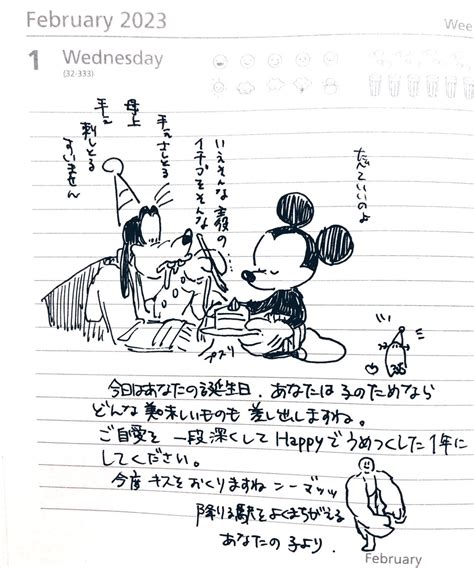 February 2023
Wee
1 Wednesday
(32-333)
たべていいのよ
いえそんな主役の…
イチゴをそんな
手ェさしとる
母上
手ェ
刺しとる
すいません
プスリ
今日はあなたの誕生日．あなたは子のためなら
どんな美味しいものも差し出しますね。
ご自愛を一段深くしてHappyでうめつくした1年に
してください。
今度キスをおくりますね ンーマッッ
降りる駅をよくまちがえる
あなたの子より．
February